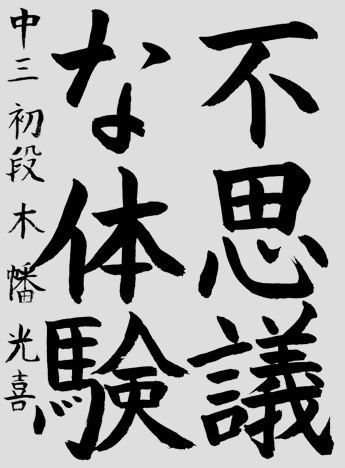 不思議
な体験
中三 初段 木幡光喜